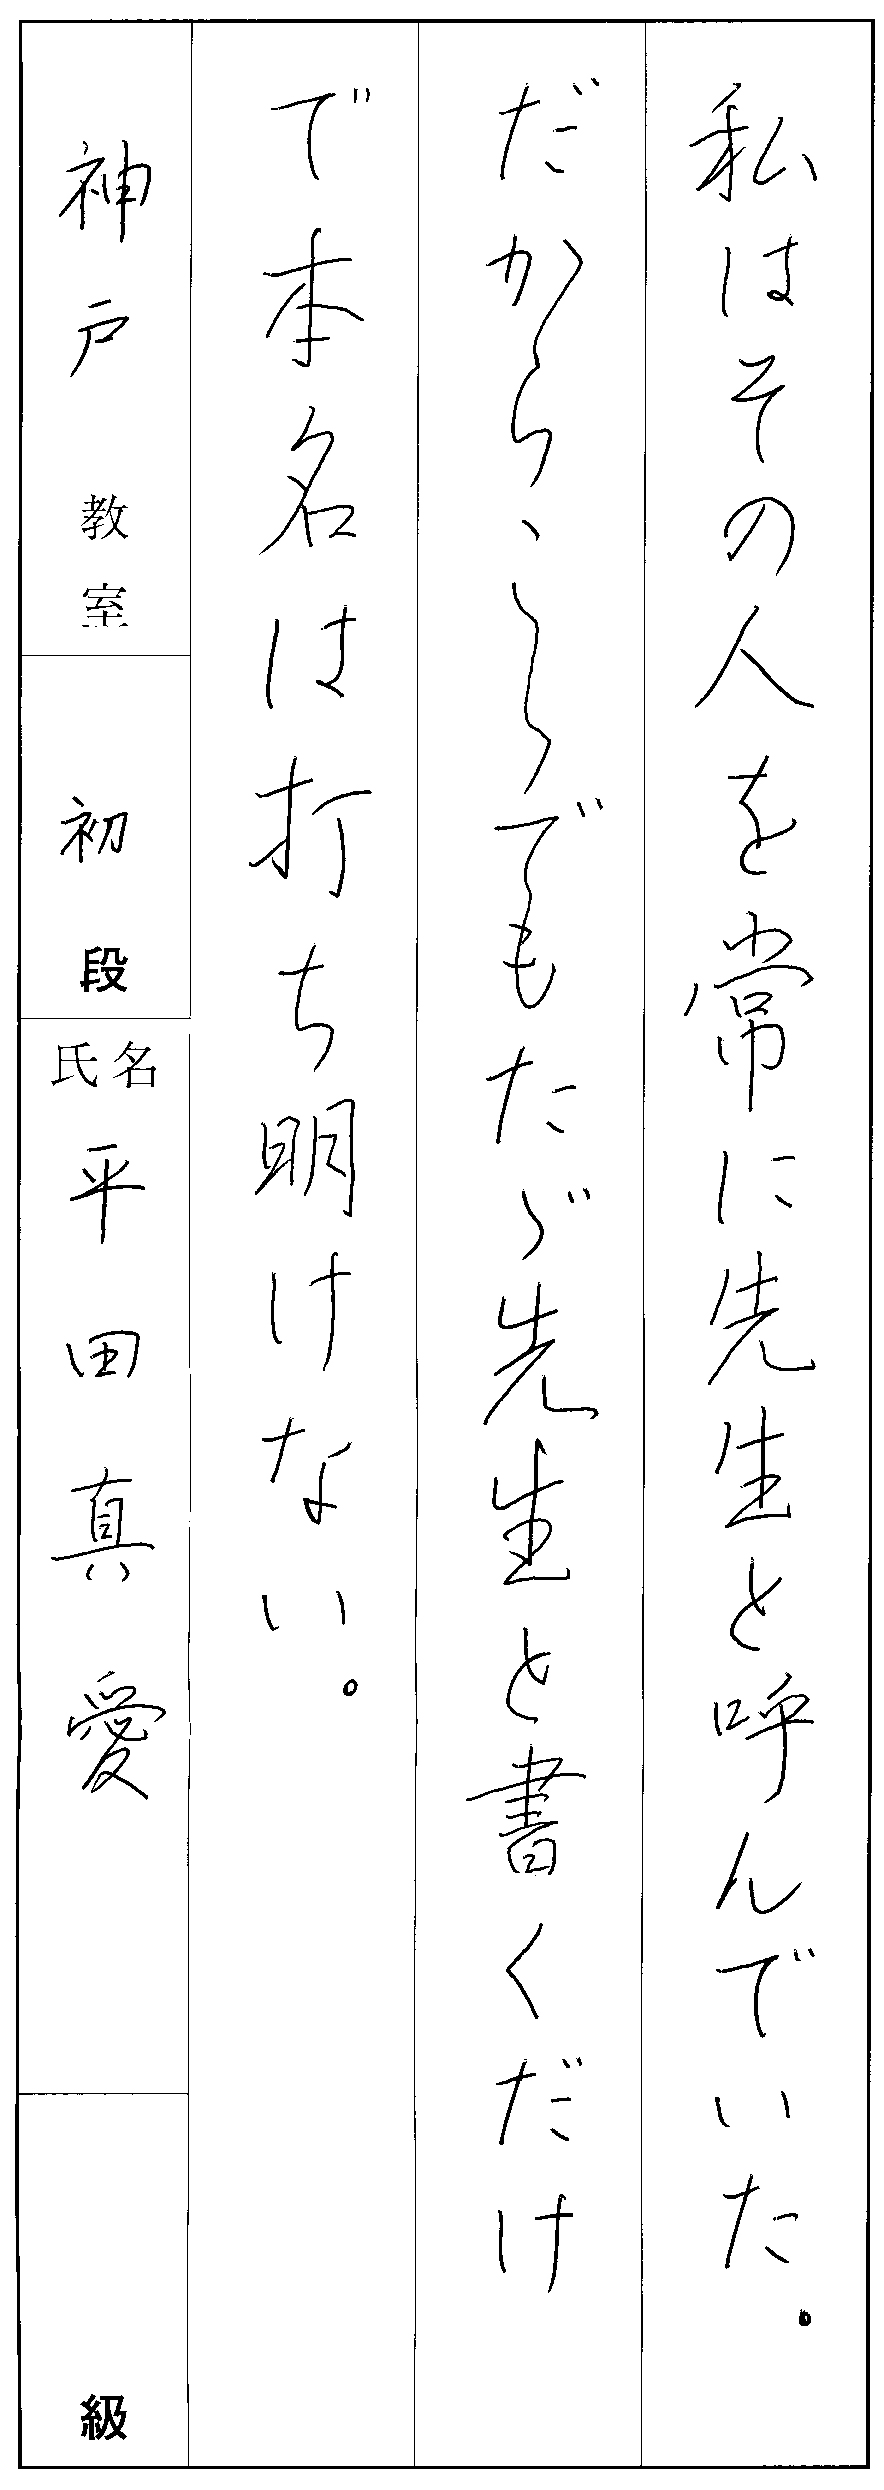 私はその人を常に先生と呼んでいた。
だから、こゝでもたゞ先生と書くだけ
で本名は打ち明けない。
神戸教室
初段
氏名 平田真愛
級